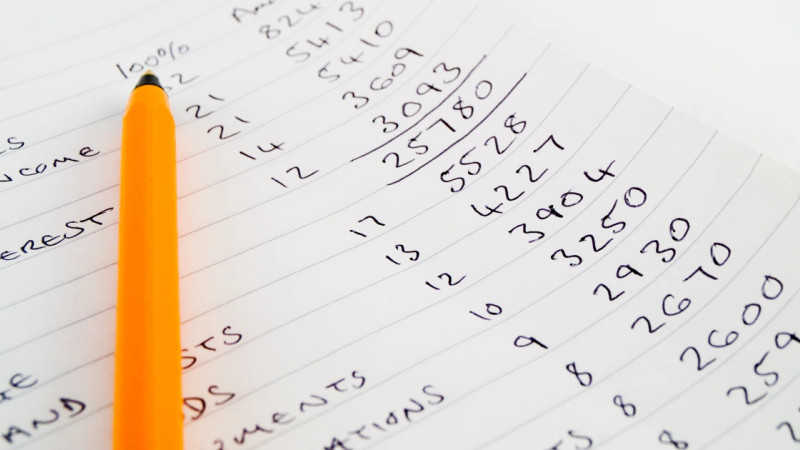 100%
32 824
NCOME 21 5413
21 5410
EREST 14 3609
12 3093
25780
17 5528
STS 13 4227
AND DS 12 3904
MENTS 10 3250
ATIONS 9 2930
8 2670
TS 8 2600
8 259